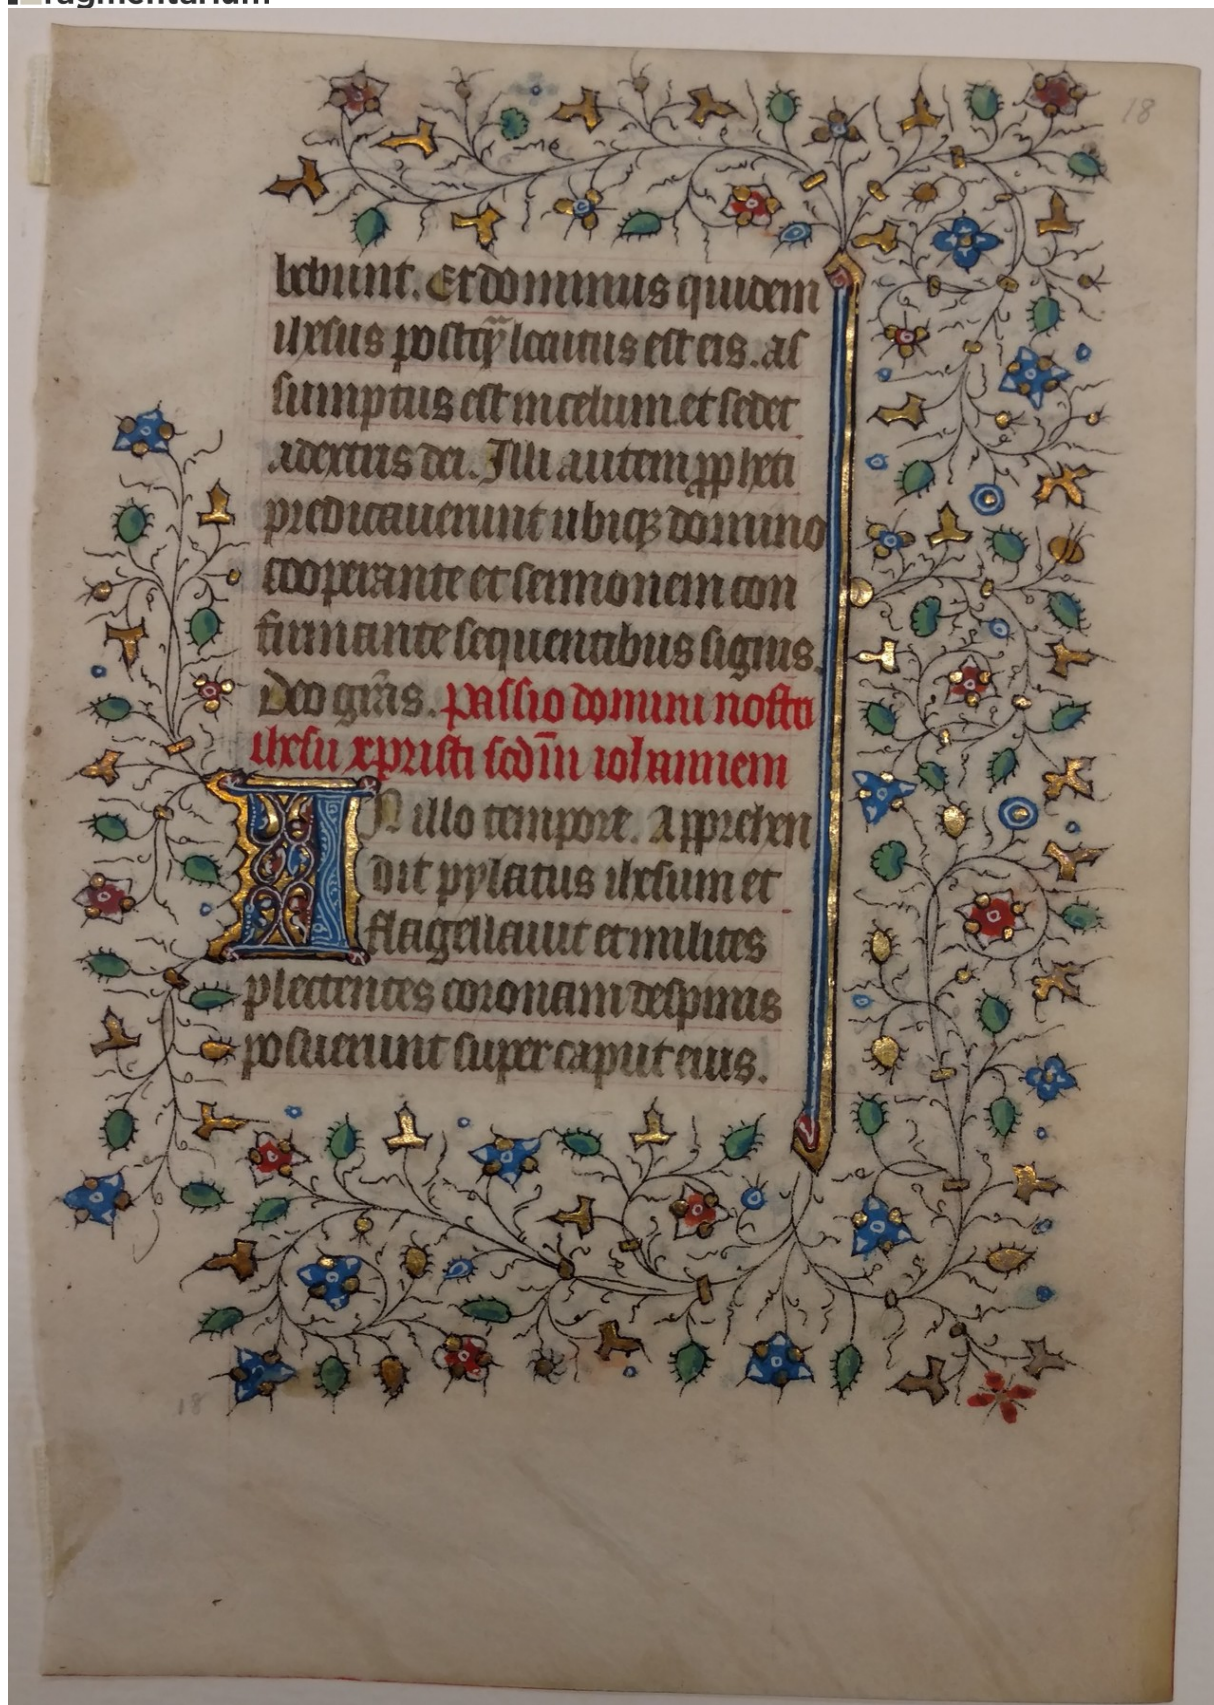 Fragmentarium
18
bebunt. Et dominus quidem
ihesus postq̄ locutus est eis. as
sumptus est in celum. et sedet
a dextris dei. Illi autem ꝓphecti
predicauerunt ubiqꝫ domino
cooperante et sermonem con
firmante sequentibus signis.
Deo grās. passio domini nostri
ihesu xpristi scdm̄ iohannem
IN illo tempore. Apprehen
dit pylatus ihesum et
flagellauit et milites
plectentes coronam de spinis
posuerunt super caput eius.
18